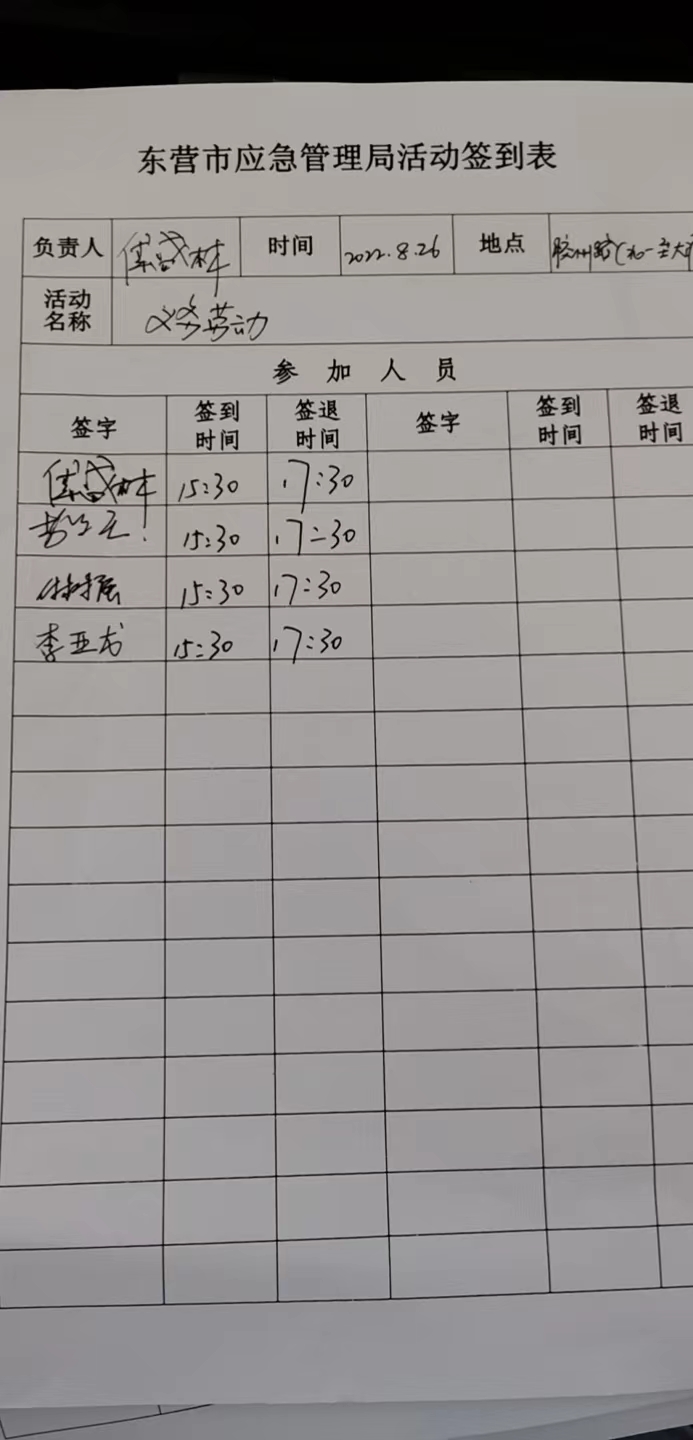 东营市应急管理局活动签到表
负责人 时间 2022.8.26 地点 胶州路
活动名称 义务劳动
参加人员
签字 签到时间 签退时间 签字 签到时间 签退时间
15:30 17:30
15:30 17:30
15:30 17:30
李亚龙 15:30 17:30